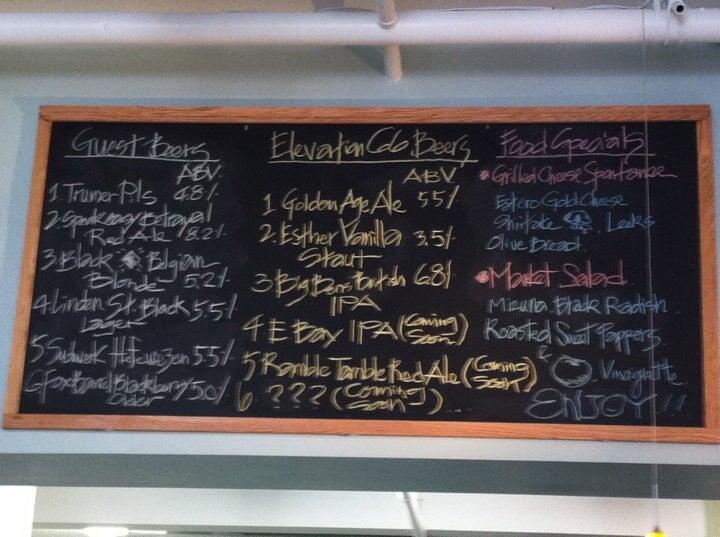 Guest Beers
ABV
1 Trumer Pils 4.8%
2. Speakeasy Betrayal
Red Ale 8.2%
3 Black Belgian
Blonde 5.2%
4 Linden St. Black 5.5%
Lager
5 Sudwerk Hefeweizen 5.5%
6 Fox Barrel Blackberry 5.0%
Cider
Elevation 66 Beers
ABV
1 Golden Age Ale 5.5%
2. Esther Vanilla 3.5%
Stout
3 Big Bens British 6.8%
IPA
4 E Bay IPA (Coming
Soon)
5 Ramble Tamble Red Ale (Coming
Soon)
6 ??? (Coming
Soon)
Food Specials
Grilled Cheese Spontanee
Estero Gold Cheese
Shiitake Leeks
Olive Bread
Market Salad
Mizuna Black Radish
Roasted Sweet Peppers
& Vinaigrette
ENJOY!!!